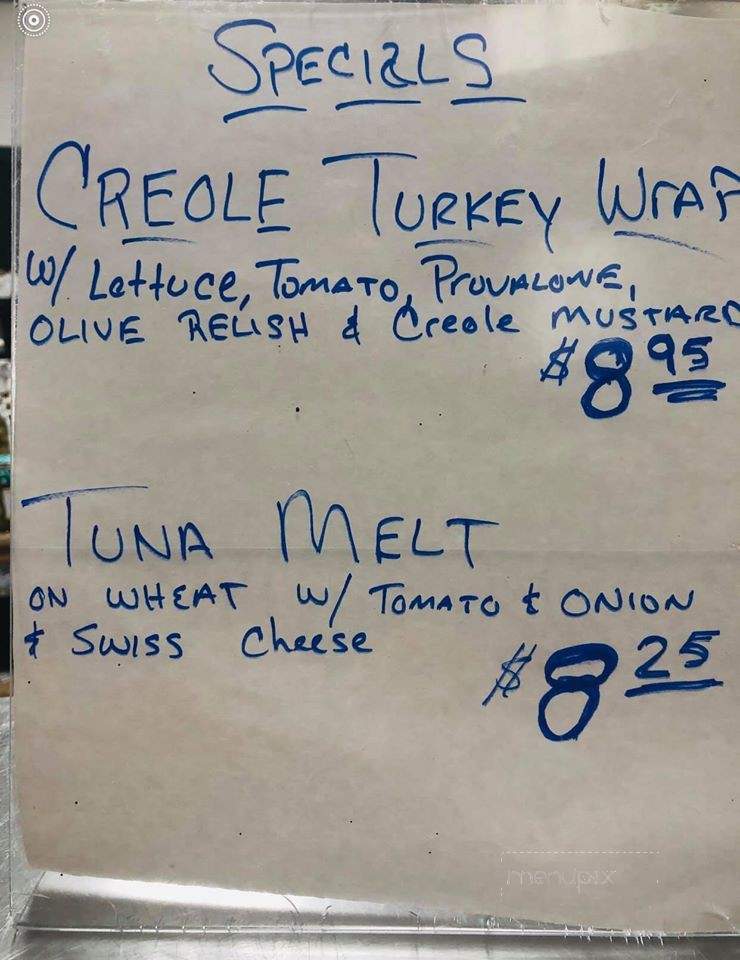 SPECIALS
CREOLE TURKEY WrAP
W/ Lettuce, TOMATO, PROVALONE,
OLIVE RELISH & Creole MUSTARD
$8 95
TUNA MELT
ON WHEAT W/ TOMATO & ONION
& SWISS Cheese
$8 25
menupix